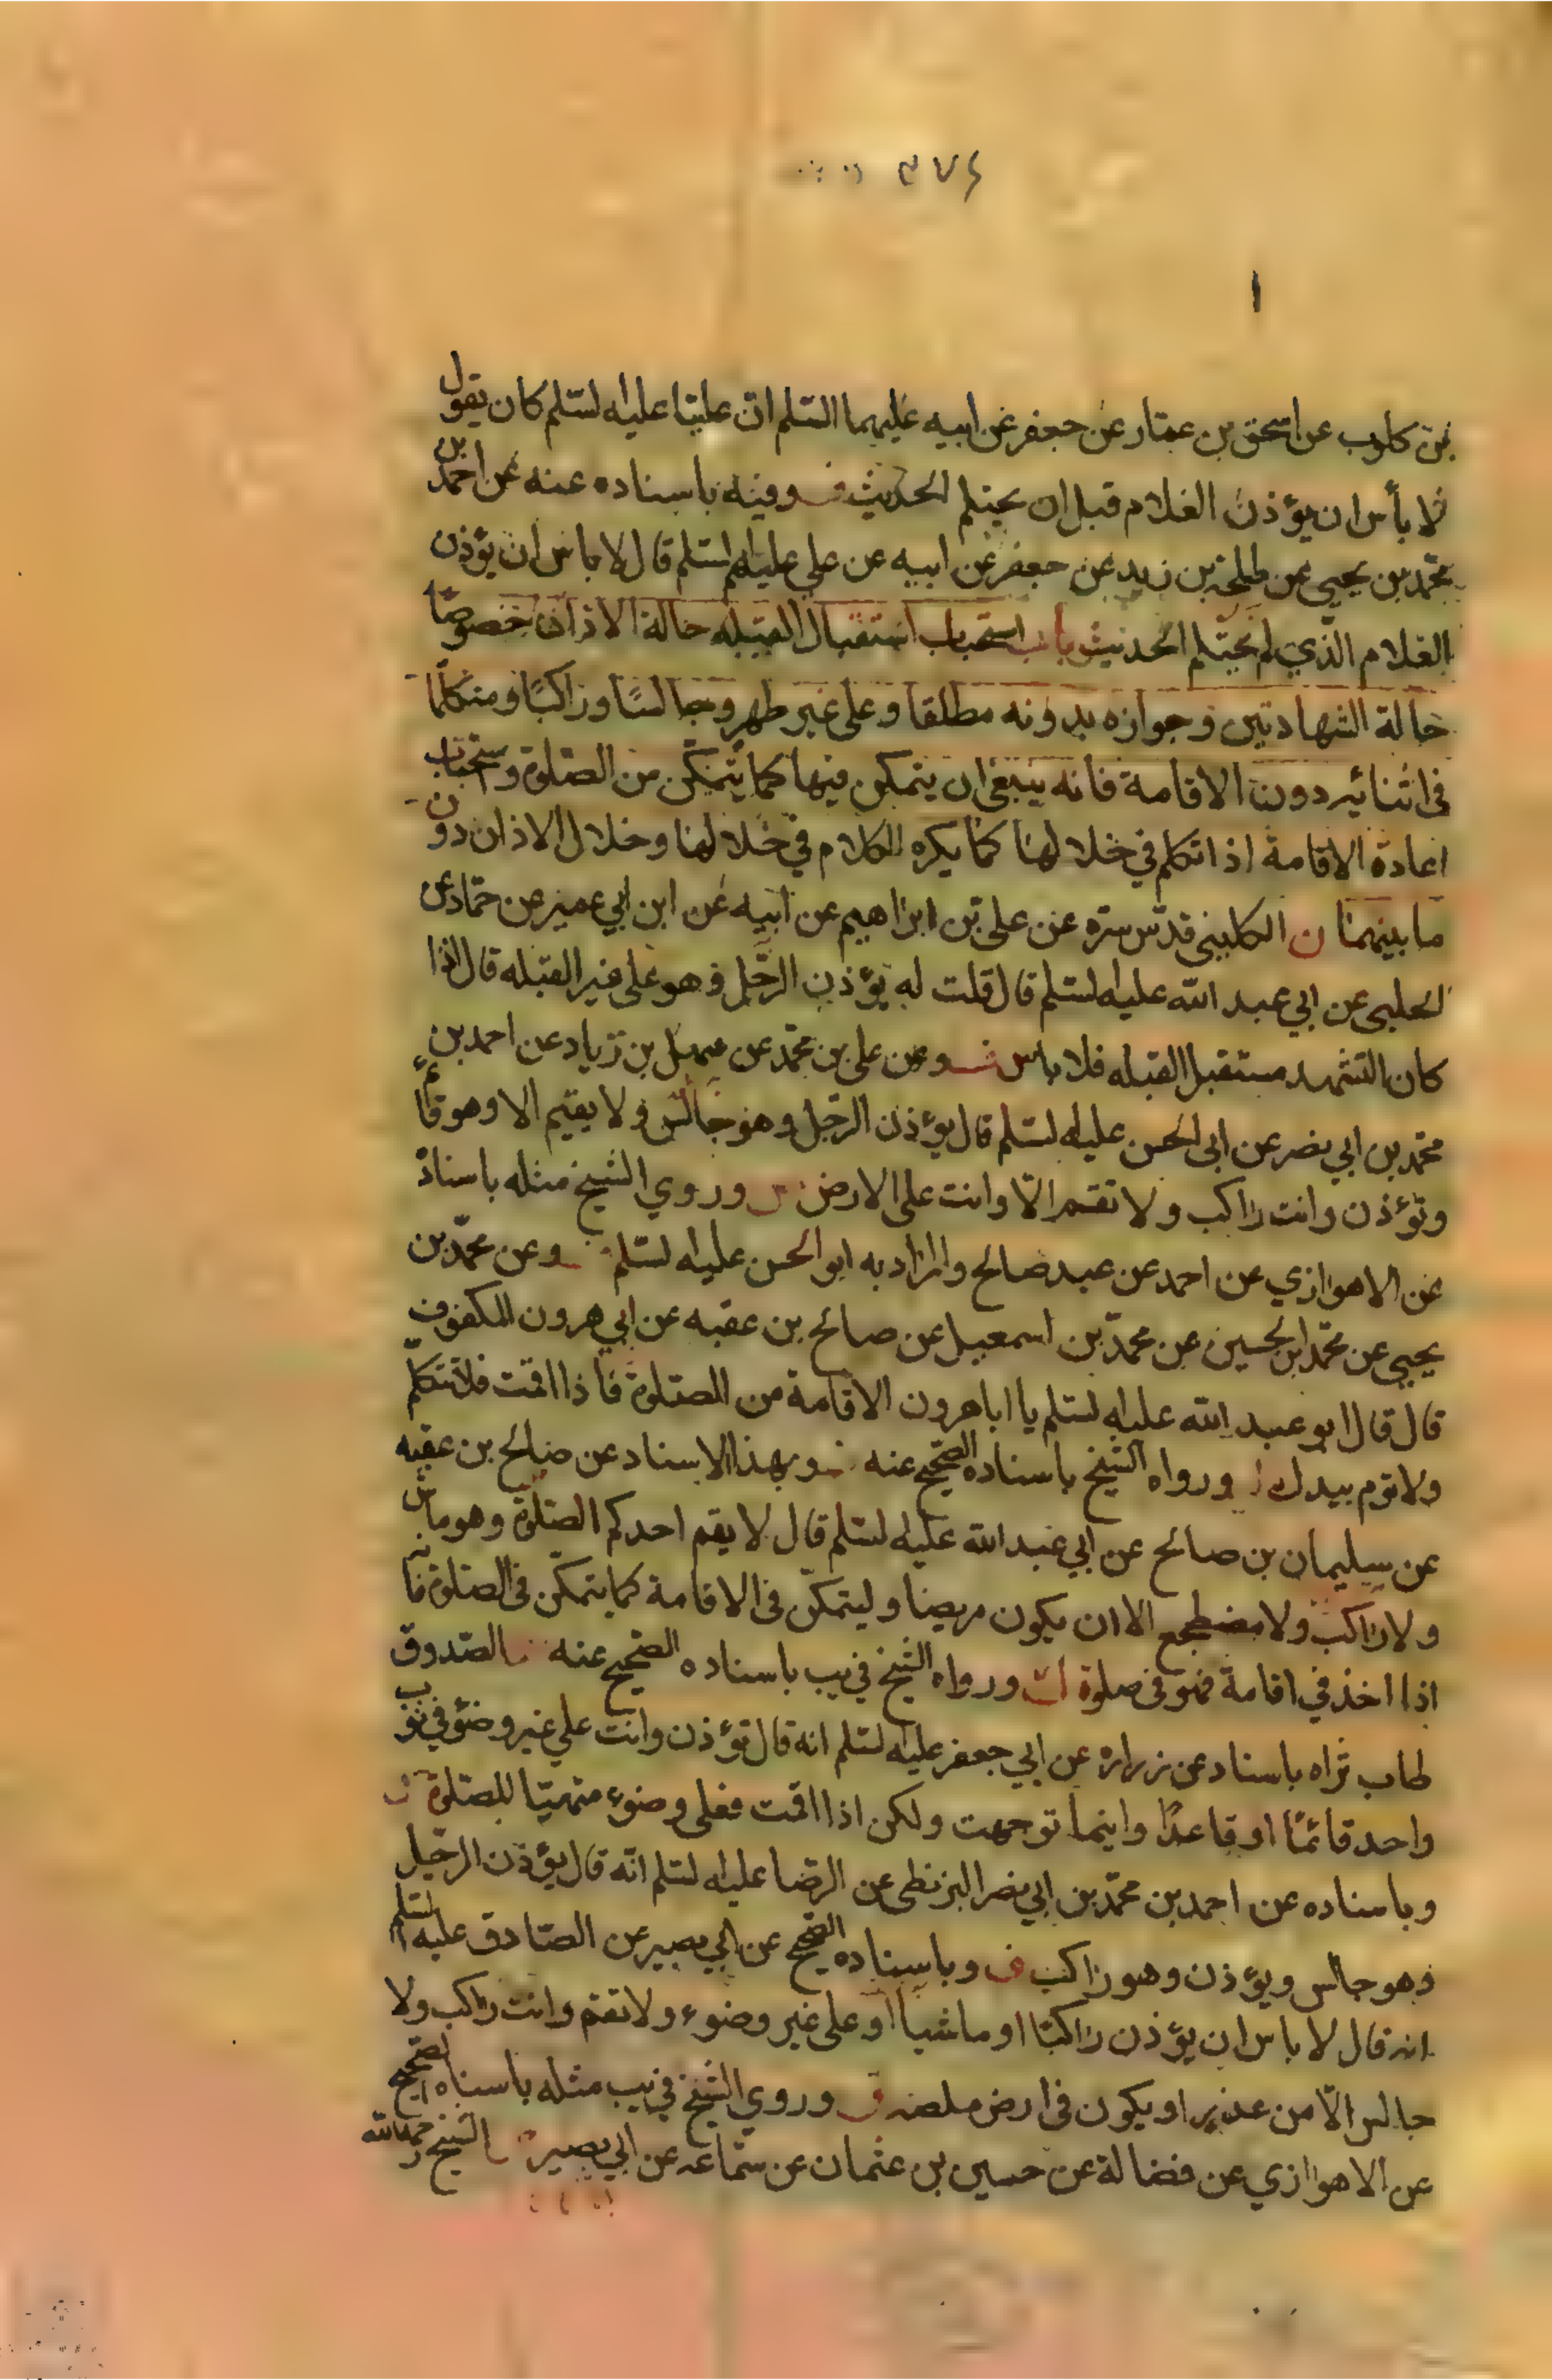 ۳۷۶
بن كلوب عن اسحق بن عمار عن جعفر عن ابيه عليهما السّلم انّ عليّا عليه لسّلم كان يقول
لا بأس ان يؤذن الغلام قبل ان يحتلم الحديث وفيه باسناده عنه عن احمد بن
محمّد بن يحيى عن طلحة بن زيد عن جعفر عن ابيه عن علي عليهم لسّلم قال لا باس ان يؤذن
الغلام الّذي لم يحتلم الحديث باب استحباب استقبال القبله حالة الاذان خصوصًا
حالة الشهادتين وجوازه بدونه مطلقا وعلى غير طهر وجالسًا وراكبًا ومتكلّمًا
في اثنائه دون الاقامة فانه ينبغي ان يتمكن فيها كما يتمكّن من الصّلوة واستحباب
اعادة الاقامة اذا تكلم في خلالها كما يكره الكلام في خلالها وخلال الاذان دون
ما بينهما ن الكليني قدّس سرّه عن علي بن ابراهيم عن ابيه عن ابن ابي عمير عن حمّاد عن
الحلبي عن ابي عبد الله عليه لسّلم قال قلت له يؤذن الرّجل وهو على غير القبله قال اذا
كان التشهد مستقبل القبله فلا باس وعن علي بن محمّد عن سهل بن زياد عن احمد بن
محمّد بن ابي نصر عن ابي الحسن عليه لسّلم قال يؤذن الرّجل وهو جالس ولا يقيم الا وهو قائم
وتؤذن وانت راكب ولا تقم الّا وانت على الارض وروي الشيخ مثله باسناده
عن الاهوازي عن احمد عن عبد صالح والمراد به ابو الحسن عليه لسّلم وعن محمّد بن
يحيى عن محمّد بن الحسين عن محمّد بن اسمعيل عن صالح بن عقبه عن ابي هرون المكفوف
قال قال ابو عبد الله عليه لسّلم يا ابا هرون الاقامة من الصّلوة فاذا اقمت فلا تتكلّم
ولا توم بيدك ورواه الشيخ باسناده الصّحيح عنه وبهذا الاسناد عن صالح بن عقبه
عن سليمان بن صالح عن ابي عبد الله عليه لسّلم قال لا يقم احدكم الصّلوة وهو ماش
ولا راكب ولا مضطجع الا ان يكون مريضا وليتمكّن في الاقامة كما يتمكّن في الصّلوة فانه
اذا اخذ في اقامة فهو في صلوة ورواه الشيخ في يب باسناده الصّحيح عنه الصّدوق
طاب ثراه باسناد عن زراره عن ابي جعفر عليه لسّلم انه قال تؤذن وانت على غير وضوء في ثوب
واحد قائمًا او قاعدًا واينما توجهت ولكن اذا اقمت فعلى وضوء متهيّا للصّلوة
وباسناده عن احمد بن محمّد بن ابي نصر البزنطي عن الرّضا عليه لسّلم انّه قال يؤذن الرّجل
وهو جالس ويؤذن وهو راكب وباسناده الصّحيح عن ابي بصير عن الصّادق عليه لسّلم
انه قال لا باس ان يؤذن راكبًا او ماشيا او على غير وضوء ولا تقم وانت راكب ولا
جالس الّا من عذر او يكون في ارض ملصه وروي الشيخ في يب مثله باسناده الصّحيح
عن الاهوازي عن فضالة عن حسين بن عثمان عن سمّاعه عن ابي بصير الشيخ رحمه الله